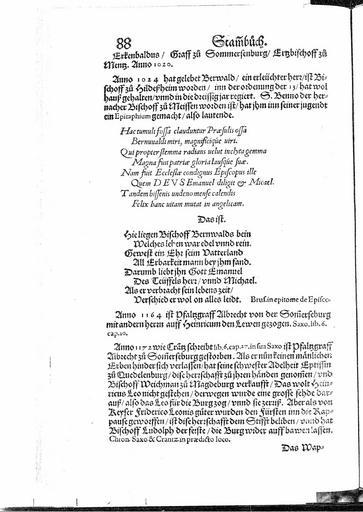 88 Stam̃bůch.
Erkenbaldus / Graff zů Sommersenburg / Ertzbischoff zů
Mentz. Anno 1020.
Anno 1024 hat gelebet Berwald / ein erleüchter herr / ist Bi-
schoff zů Hildesheim worden / inn der ordnung der 13 / hat wol
hauß gehalten / vnnd in die dreissig jar regiert. S. Benno der her-
nacher Bischoff zů Meissen worden ist / hat jhm inn seiner jugendt
ein Epitaphium gemacht / also lautende.
Hac tumuli fossa clauduntur Præsulis ossa
Bernuualdi miri, magnificiq́ue uiri.
Qui propter stemma radians uelut inclyta gemma
Magna fuit patriæ gloria lausq́ue suæ.
Nam fuit Ecclesiæ condignus Episcopus ille
Quem DEVS Emanuel diligit & Micael.
Tandem bissenis undenomense calendis
Felix hanc uitam mutat in angelicam.
Das ist.
Hie liegen Bischoff Bernwalds bein
Welches leben war edel vnnd rein.
Gewest ein Ehr seim Vatterland
All Erbarkeit mann bey jhm fand.
Darumb liebt jhn Gott Emanuel
Des Teüffels herr / vnnd Michael.
Als er verbracht sein lebens zeit /
Verschied er wol on alles leidt. Brus. in epitome de Episco-
Anno 1164 ist Pfaltzgraff Albrecht von der Som̃ersburg
mit andern herrn auff Heinricum den Lewen gezogen. Saxo. lib. 6.
cap. 20.
Anno 1172 wie Crãtz schreibt lib. 6. cap. 27. in sua Saxo ist Pfaltzgraff
Albrecht zů Som̃erseburg gestorben. Als er nůn keinen mänlichen
Erben hinder sich verlassen / hat seine schwester Adelheit Eptissin
zů Quedelenburg / die herrschafft zů jhren hãnden genom̃en / vnd
Bischoff Weichman zů Magdeburg verkaufft / Das wolt Hein-
ricus Leo nicht gestehen / derwegen wurde eine grosse fehde dar-
auß / also das Leo für die Burg zog / vnnd sie zerriß. Aber als von
Keyser Friderico Leonis güter wurden den Fürsten inn die Rap-
pause geworffen / ist die herrschafft dem Stifft belibẽ / vnnd hat
Bischoff Ludolph der feste / die Burg wider auff bawen lassen.
Chron. Saxo & Crantz. in prædicto loco.
Das Wap-